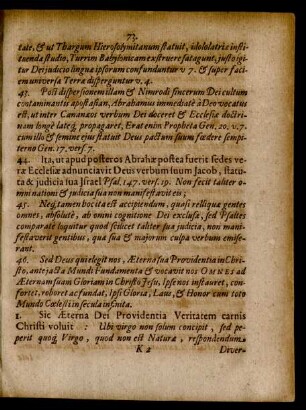 73.
tate, & ut Thargum Hierosolymitanum statuit, idololatriæ insti-
tuenda studio, Turrim Babylonicam exstruere satagunt, justo igi-
tur Dei judicio lingua ipsorum confunduntur v 7. & super faci-
em universa Terra disperguntur v. 4.
43. Post dispersionem illam & Nimrodi sincerum Dei cultum
contaminantis apostasian, Abrahamus immediatè à Deo vocatus
est, ut inter Cananæos verbum Dei doceret & Ecclesiæ doctri-
nam longè lateq; propagaret, Erat enim Propheta Gen. 20. v. 7.
cum illo & semine ejus statuit Deus pactum suum fœdere sempi-
terno Gen. 17. vers 7.
44. Ita, ut apud posteros Abrahæ postea fuerit sedes ve-
ræ Ecclesiæ adnunciavit Deus verbum suum Jacob, statu-
ta & judicia sua Israel Psal. 147. vers. 19. Non fecit taliter om-
ni nationi & judicia sua non manifestavit eis;
45. Neq; tamen hoc ita est accipiendum, quasi relliquæ gentes
omnes, absolutè, ab omni cognitione Dei exclusæ, sed Psaltes
comparatè loquitur quod scilicet taliter sua judicia, non mani-
festaverit gentibus, qua sua & majorum culpa verbum emise-
rant.
46. Sed Deus qui elegit nos, Æterna sua Providentia in Chri-
sto, ante jacta Mundi Fundamenta & vocavit nos OMNES ad
Æternam suam Gloriam in Christo Jesu, Ipse nos instauret, con-
fortet, roboret ac fundat, Ipsi Gloria, Laus, & Honor cum toto
Mundo Cœlesti in secula infinita.
1. Sic Æterna Dei Providentia Veritatem carnis
Christi voluit : Ubi virgo non solum concipit, sed pe-
perit quoq; Virgo, quod non est Naturæ, respondendum
K 2 Diver-